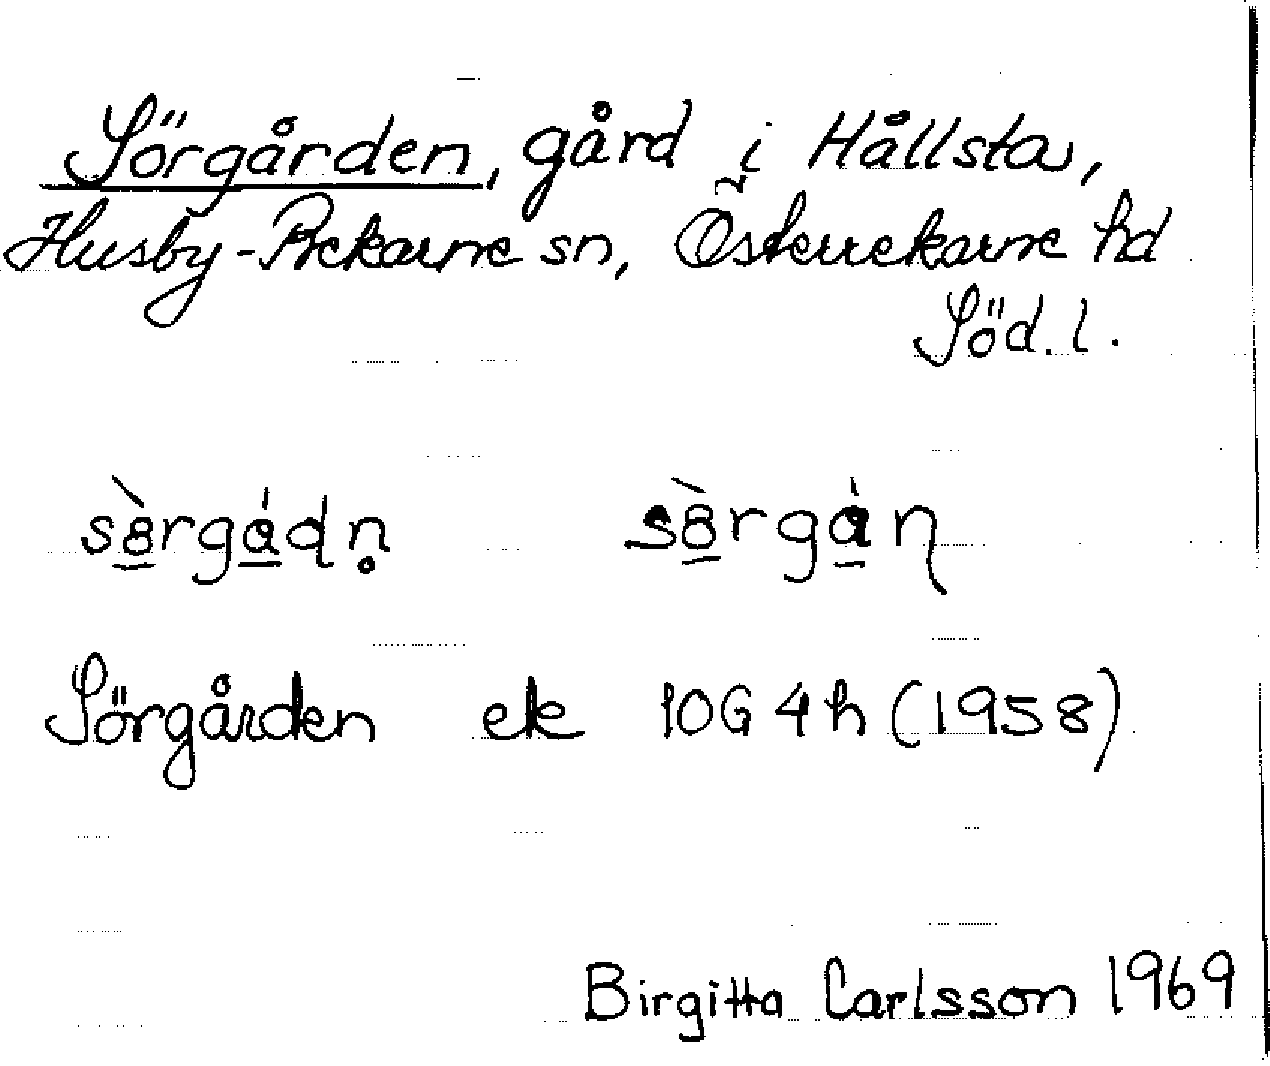 Sörgården, gård i Hållsta,
Husby-Rekarne sn, Österrekarne hd
Söd. l.
sö̀rgádn̥ sö̀rgáɳ
Sörgården ek 10G 4h (1958)
Birgitta Carlsson 1969